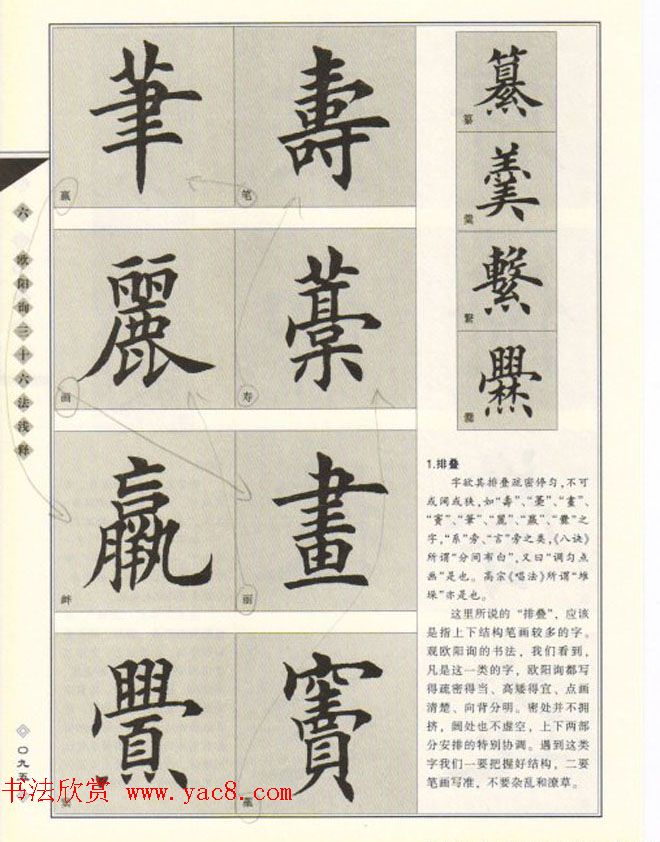 六 欧阳询三十六法浅释
〇九五
筆
壽
赢
笔
麗
藁
画
寿
羸
畫
衅
丽
釁
竇
纂
羹
繫
爨
纂
羹
繫
爨
1.排叠
字欲其排叠疏密停匀,不可
或阔或狭,如“壽”、“藁”、“畫”、
“竇”、“筆”、“麗”、“羸”、“爨”之
字,“系”旁、“言”旁之类,《八诀》
所谓“分间布白”,又曰“调匀点
画”是也。高宗《唱法》所谓“堆
垛”亦是也。
这里所说的“排叠”,应该
是指上下结构笔画较多的字。
观欧阳询的书法,我们看到,
凡是这一类的字,欧阳询都写
得疏密得当、高矮得宜、点画
清楚、向背分明。密处并不拥
挤,阔处也不虚空,上下两部
分安排的特别协调。遇到这类
字我们一要把握好结构,二要
笔画写准,不要杂乱和潦草。
书法欣赏 www.yac8.com